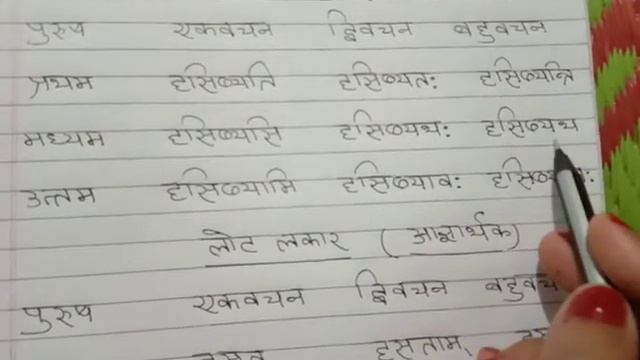 पुरुष एकवचन द्विवचन बहुवचन
प्रथम हसिष्यति हसिष्यतः हसिष्यन्ति
मध्यम हसिष्यसि हसिष्यथः हसिष्यथ
उत्तम हसिष्यामि हसिष्यावः
लोट लकार (आज्ञार्थक)
पुरुष एकवचन द्विवचन
हसताम्